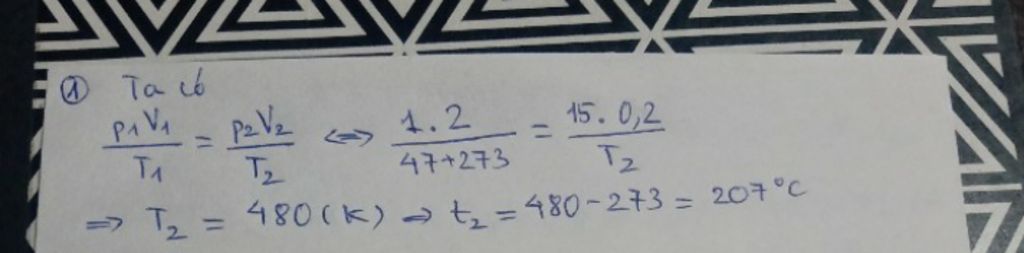 ① Ta có
p₁V₁/T₁ = p₂V₂/T₂ ⇔ 1.2/47+273 = 15.0,2/T₂
⇒ T₂ = 480 (K) ⇒ t₂ = 480 - 273 = 207°C